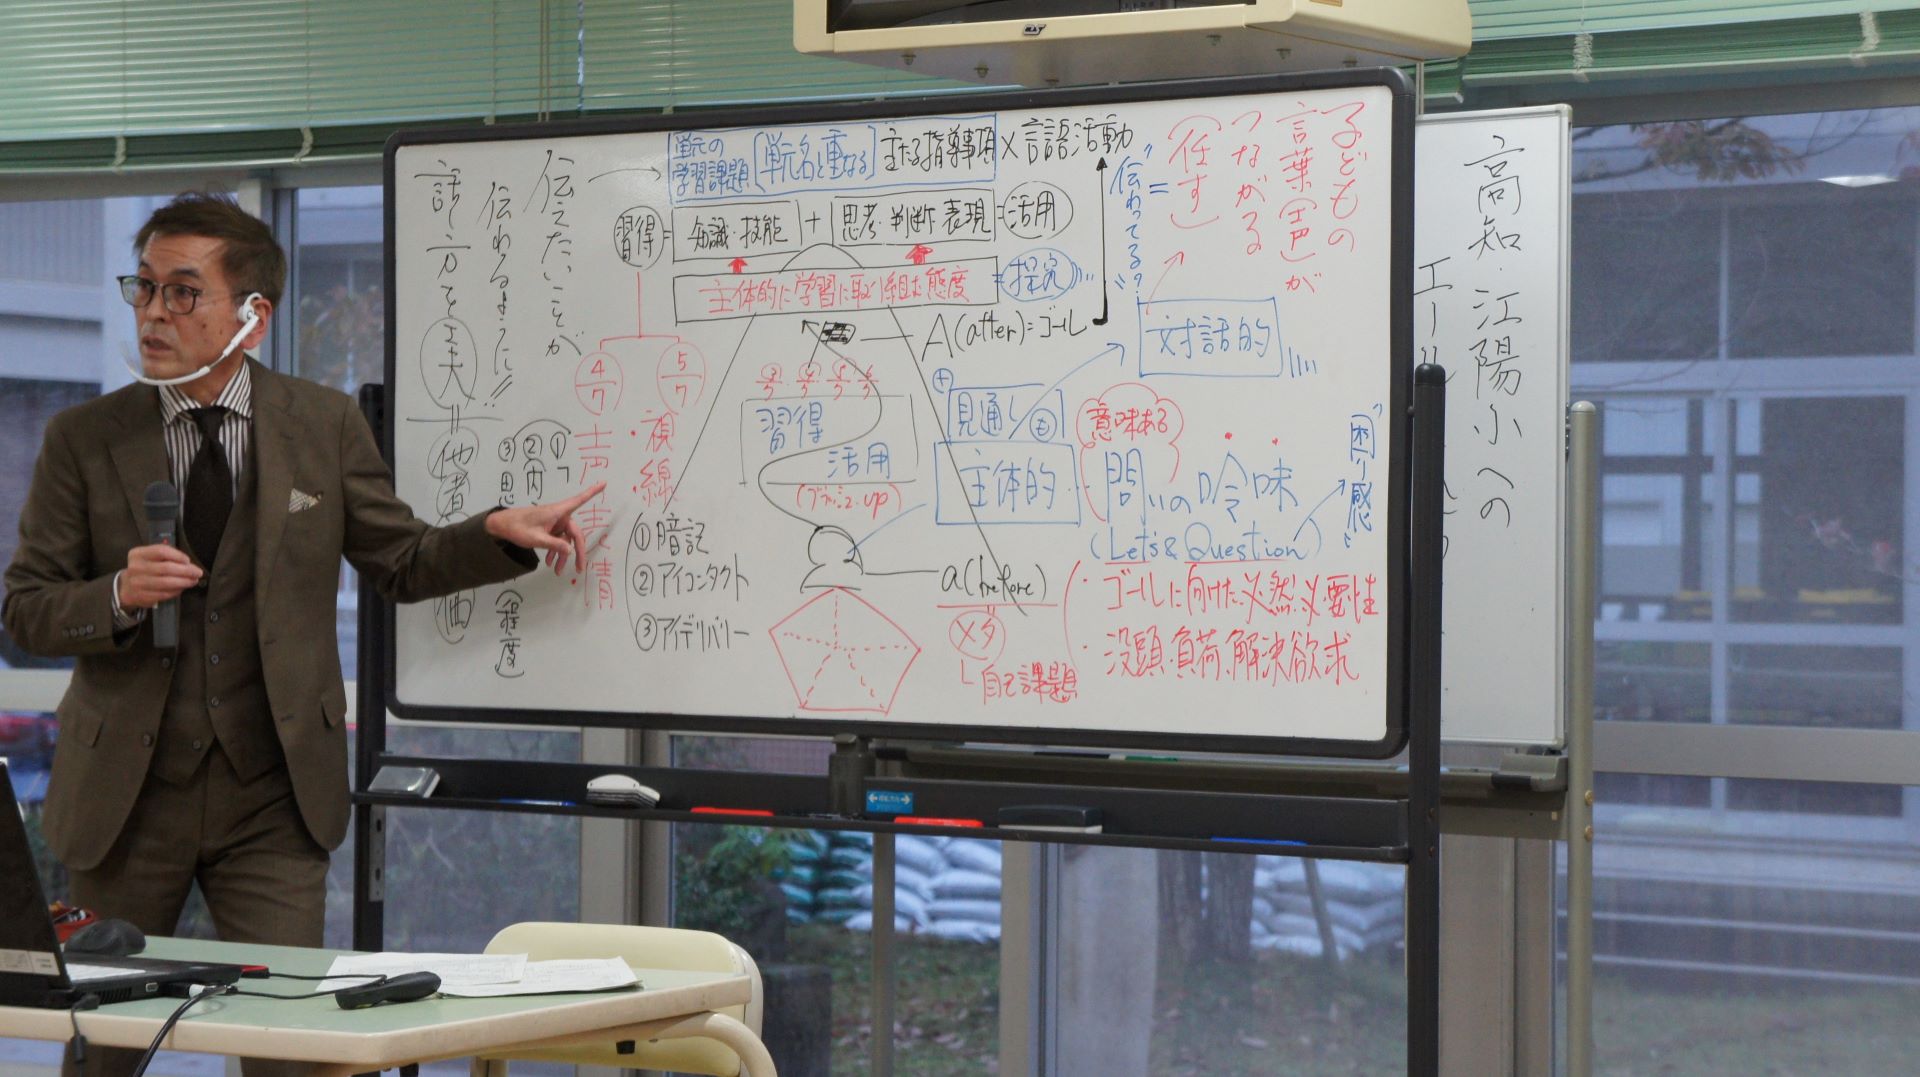 高知・江陽小への
エール
子どもの
言葉(声)が
つながる
(任す)
=
"伝わってる?"
単元の
学習課題
[単元名と重なる]
主たる指導事項×言語活動
習得=
知識・技能
+
思考・判断・表現
=活用
主体的に学習に取り組む態度
=探究
A(after)=ゴール
対話的
習得
活用
(ブラッシュup)
+
見通し
も
主体的
意味ある
問いの吟味
(Let's & Question)
"困り感"
・ゴールに向けた必然、必要性
・没頭、負荷、解決欲求
a(before)
メタ
自己課題
伝えたいことが
伝わるように!!
話し方を工夫
=
他者
①
②内
③思
(程度)
4/7
5/7
・視線
①暗記
②アイコンタクト
③アイデリバリー